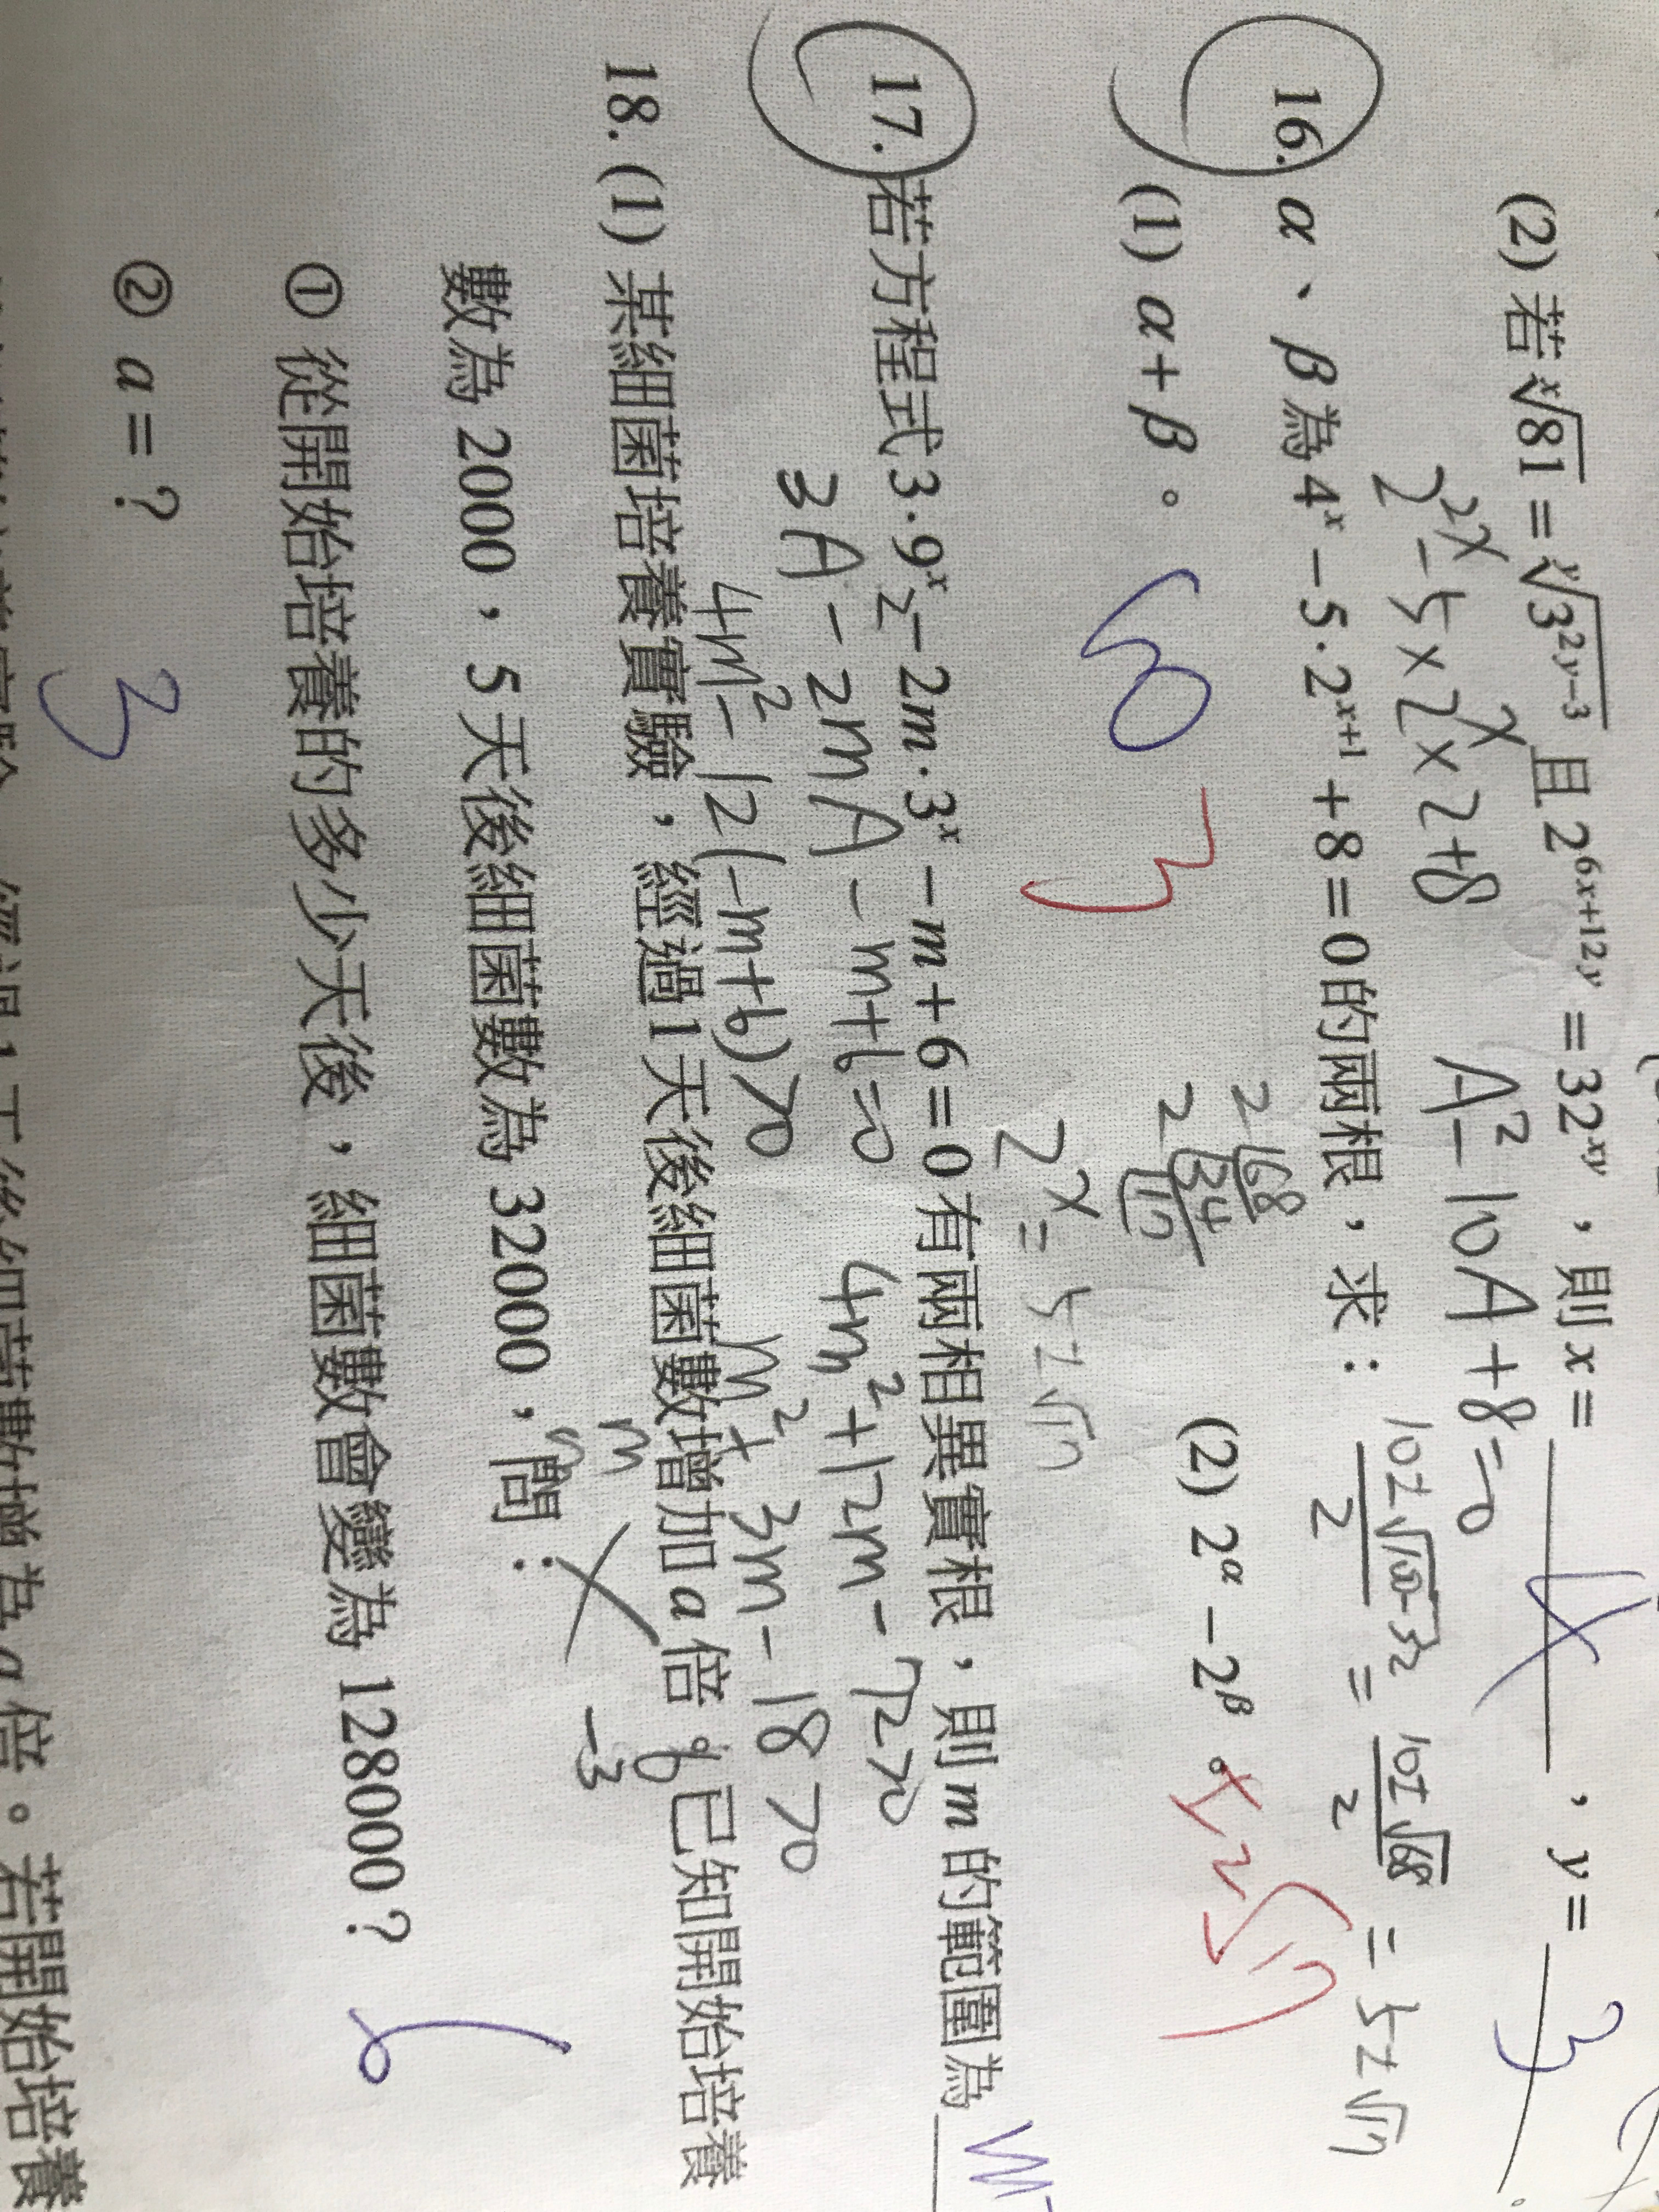 (2) 若 ˣ√81 = ʸ√3^{2y−3} 且 2^{6x+12y} = 32^{xy},則 x = 4,y = 3
2^{2x} − 5 × 2^x × 2 + 8
A² − 10A + 8 = 0
16. α、β 為 4^x − 5·2^{x+1} + 8 = 0 的兩根,求:
10±√100−32 / 2 = 10±√68 / 2 = 5±√17
(1) α + β。 3
(2) 2^α − 2^β。 ±2√17
2 | 68
2 | 34
17
2^x = 5±√17
17. 若方程式 3·9^x − 2m·3^x − m + 6 = 0 有兩相異實根,則 m 的範圍為
3A² − 2mA − m + 6 = 0
4m² + 12m − 72 > 0
4m² − 12(−m+6) > 0
m² + 3m − 18 > 0
m 6
m −3
18. (1) 某細菌培養實驗,經過 1 天後細菌數增加 a 倍。已知開始培養
數為 2000,5 天後細菌數為 32000,問:
① 從開始培養的多少天後,細菌數會變為 128000? 6
② a = ? 3